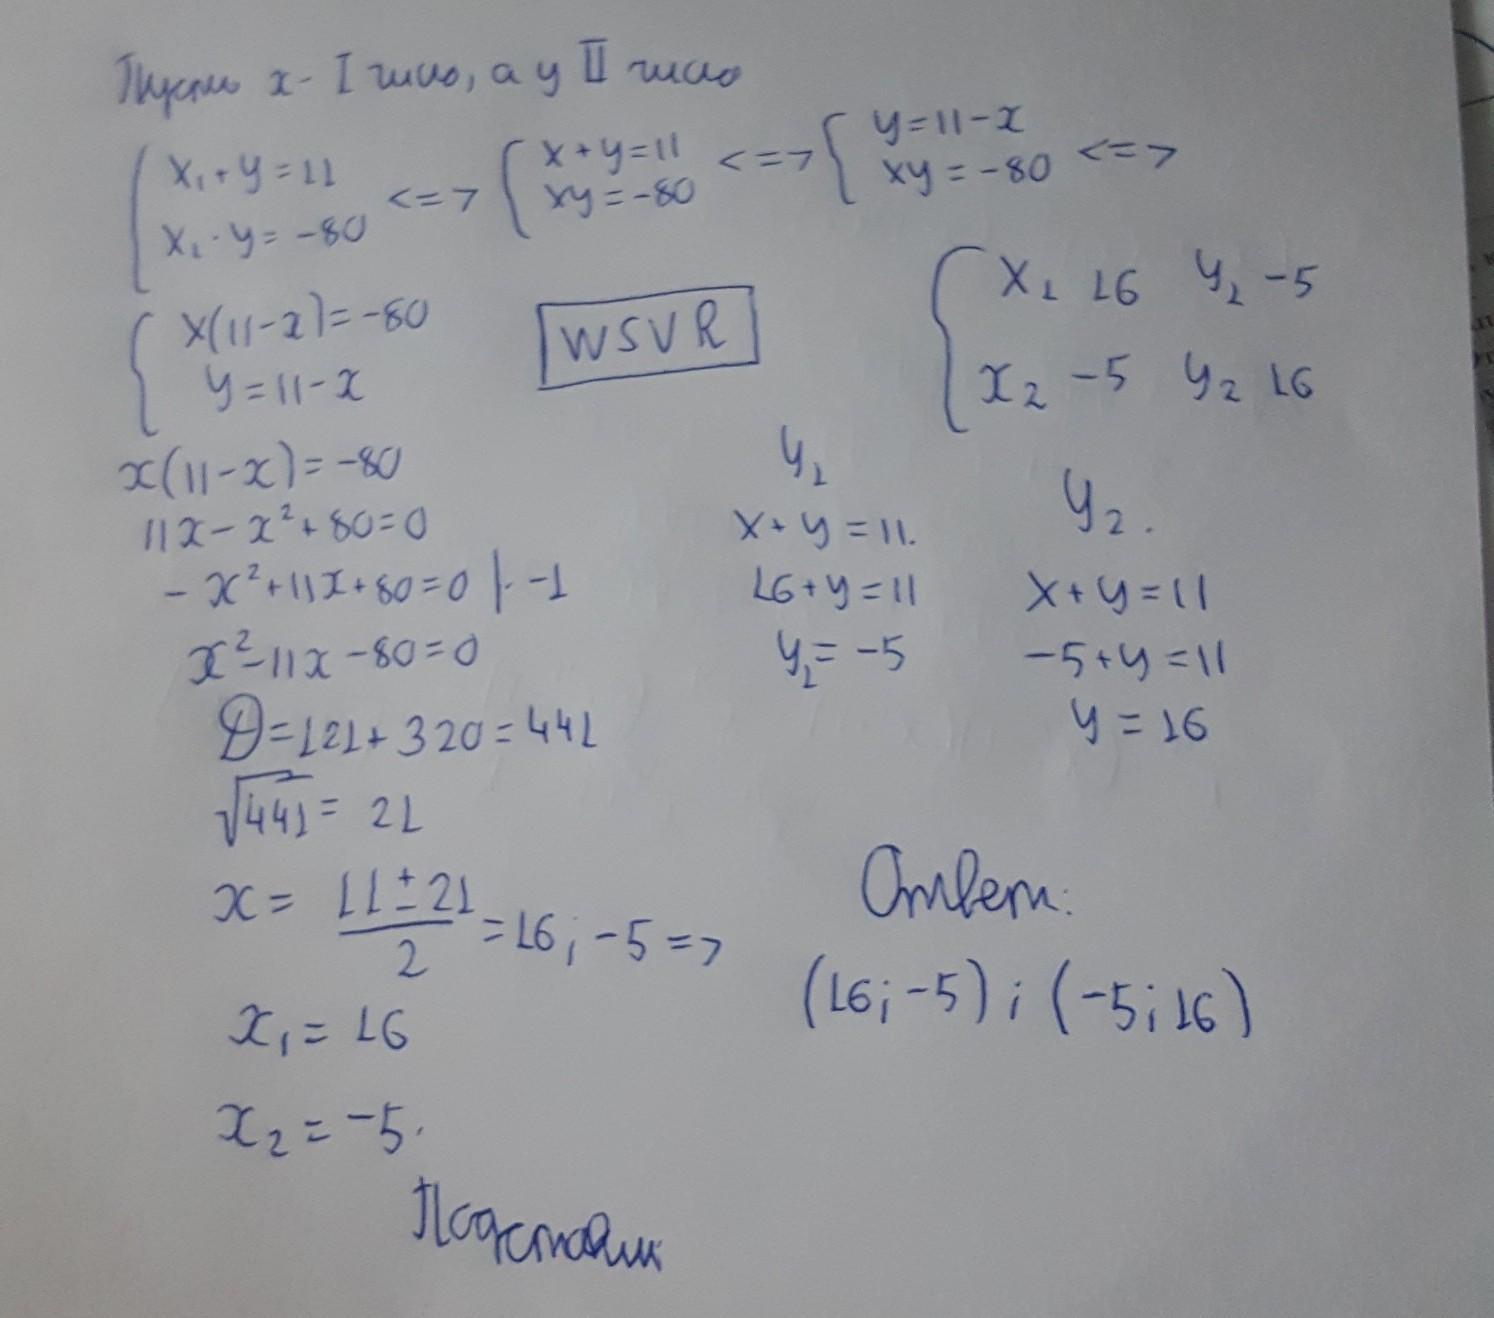 Пусть x - I число, а y II число
{ x₁ + y = 11 <=> { x + y = 11 <=> { y = 11 - x <=>
x₁ · y = -80 xy = -80 xy = -80
{ x(11-x) = -80
y = 11 - x
WSVR
{ x₁ 16 y₁ -5
x₂ -5 y₂ 16
x(11-x) = -80
11x - x² + 80 = 0
- x² + 11x + 80 = 0 |· -1
x² - 11x - 80 = 0
D = 121 + 320 = 441
√441 = 21
x = (11 ± 21)/2 = 16; -5 =>
x₁ = 16
x₂ = -5.
Подставим
y₁
x + y = 11.
16 + y = 11
y₁ = -5
y₂.
x + y = 11
-5 + y = 11
y = 16
Ответ:
(16; -5); (-5; 16)